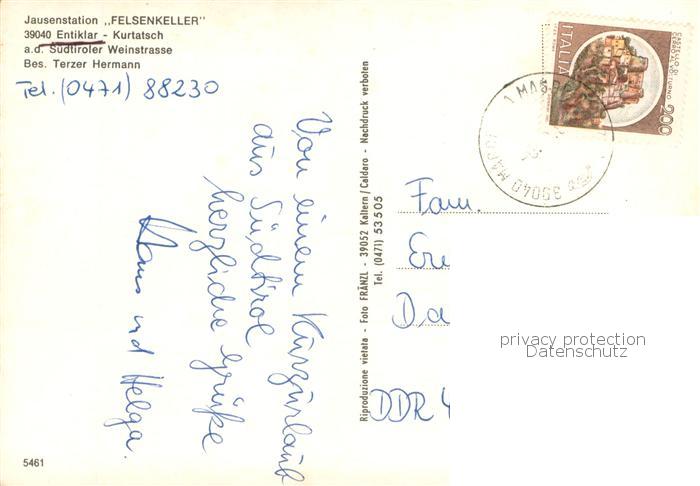 Jausenstation „FELSENKELLER"
39040 Entiklar - Kurtatsch
a.d. Südtiroler Weinstrasse
Bes. Terzer Hermann
Tel. (0471) 88230
Von einem Kurzurlaub
aus Südtirol
herzliche Grüße
Hans und Helga.
5461
Riproduzione vietata - Foto FRÄNZL - 39052 Kaltern/Caldaro - Nachdruck verboten
Tel. (0471) 53505
ITALIA
CASTELLO DI
CERRO AL VOLTURNO
200
39040
Fam.
DDR 4
privacy protection
Datenschutz